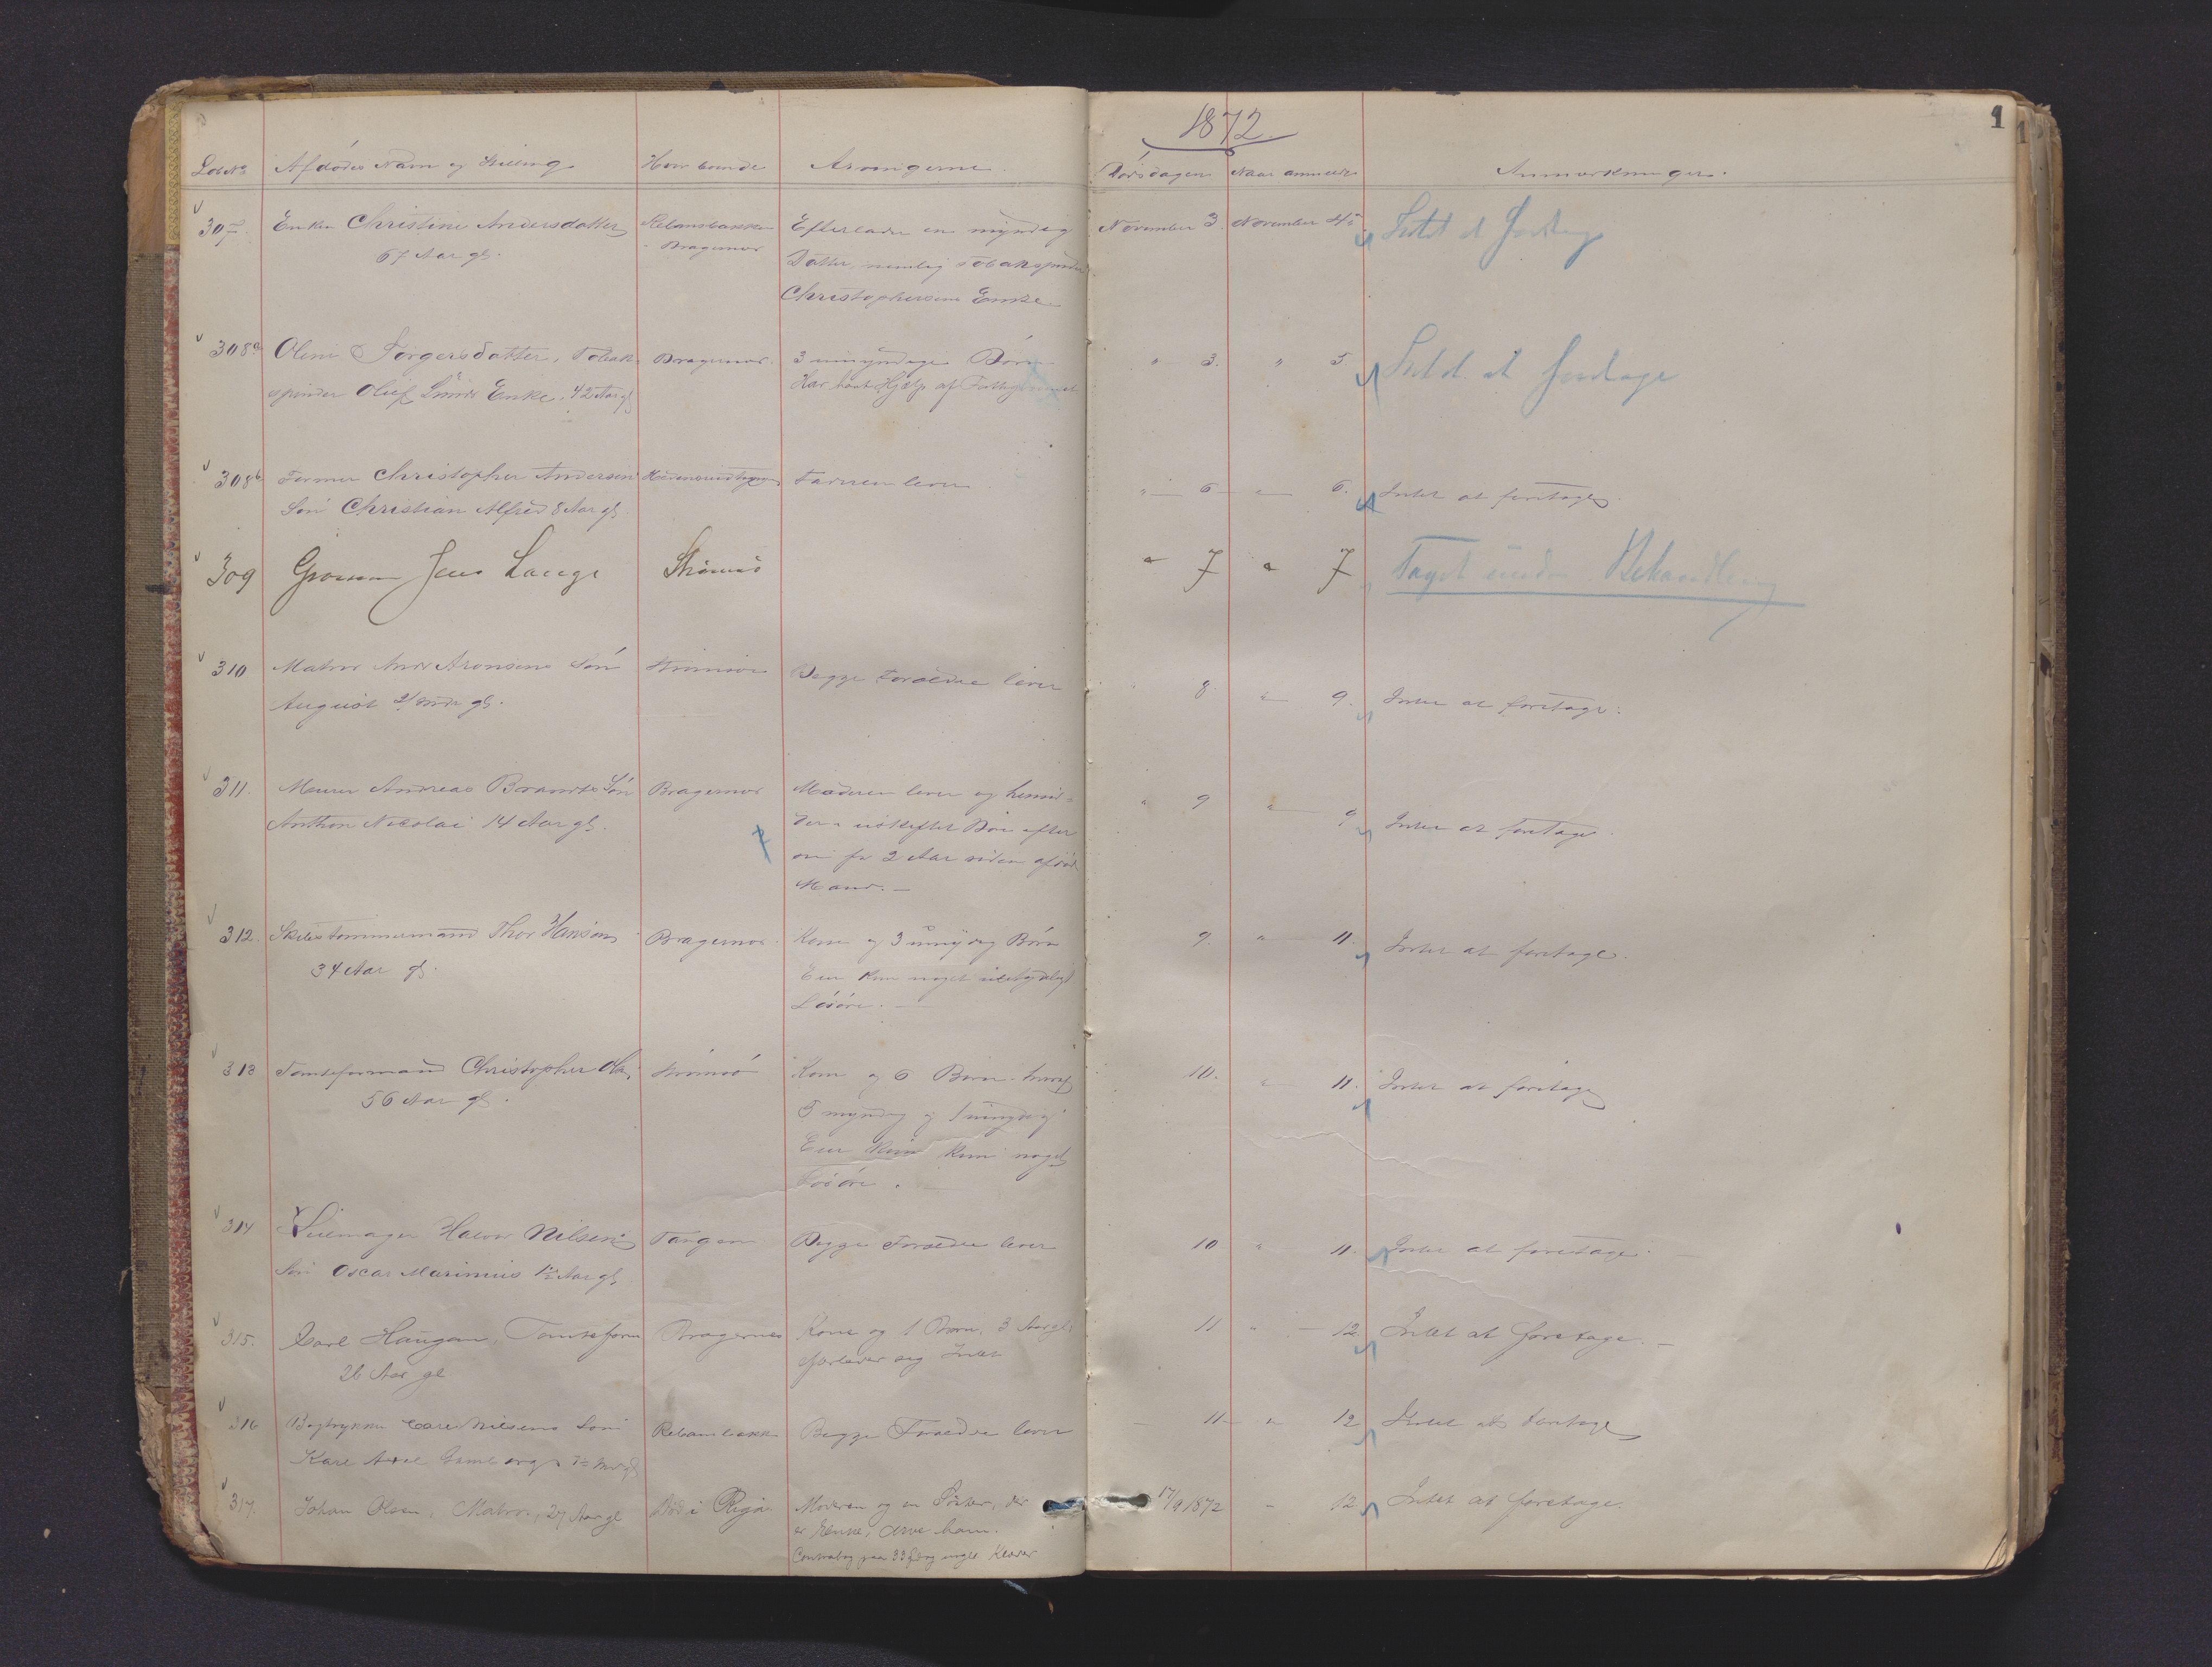 1872.
1
Lob. No Afdødes Navn og Stilling Hvor boende Arvingerne Dødsdagen Naar anmeldt Anmærkninger.
307. Enke Christine Andersdatter Rebansbakken Efterlader en myndig November 3. November 4. Intet at foretage
67 Aar gl. Bragernæs Datter, nemlig Tobakspinder
Christophersens Enke
308a Oline Jørgersdatter, Tobak Bragernæs. 3 umyndige Børn " 3. " 5. Intet at foretage
spinder Oluf Linds Enke, 42 Aar gl. Har havt Hjælp af
308b Former Christopher Andersen Faderen lever " 6 " 6. Intet at foretage
Søn Christian Alfred 8 Aar gl.
309 Jens Lange Strømsø " 7 " 7 Taget under Behandling
310 Matros Ands Aronsens Søn Strømsøe Begge Forældre lever 8. " 9. Intet at foretage.
August 2½ Mdr gl.
311. Murer Andreas Brandts Søn Bragernæs Moderen lever og hensid-
" 9 " 9 Intet at foretage.
Anthon Nicolai 14 Aar gl. der i uskiftet Bo efter
sin for 2 Aar siden afdøde
Mand. —
312. Skibstømmermand Thor Hansen Bragernæs. Kone og 3 umyndig Børn 9. " 11. Intet at foretage.
34 Aar gl. Eier kun noget ubetydeligt
Løsøre. —
313 Tomteformand Christopher Strømsø Kone og 6 Børn 10. " 11. Intet at foretage
56 Aar gl. 5 myndig og 1 umyndig.
Eier kun noget
Løsøre. —
314 Seilmager Halvor Nilsens Tangen Begge Forældre lever 10 " 11. Intet at foretage. —
Søn Oscar Marinius 1½ Aar gl.
315. Carl Haugan, Tomteform Bragernes Kone og 1 Barn, 3 Aar gl. 11 " — 12 Intet at foretage. —
26 Aar gl efterlader sig Intet
316 Bogtrykker Carl Nielsens Søn Rebansbakk Begge Forældre lever — 11 — " 12 Intet at foretage
Karl Axel
317. Johan Olsen, Matros, 27 Aar gl Død i Riga. Moderen og en Søster, der 17/9 1872 — 12 Intet at foretage.
er Enke, arve ham.
Contrabog paa 33 og nogle Klæder